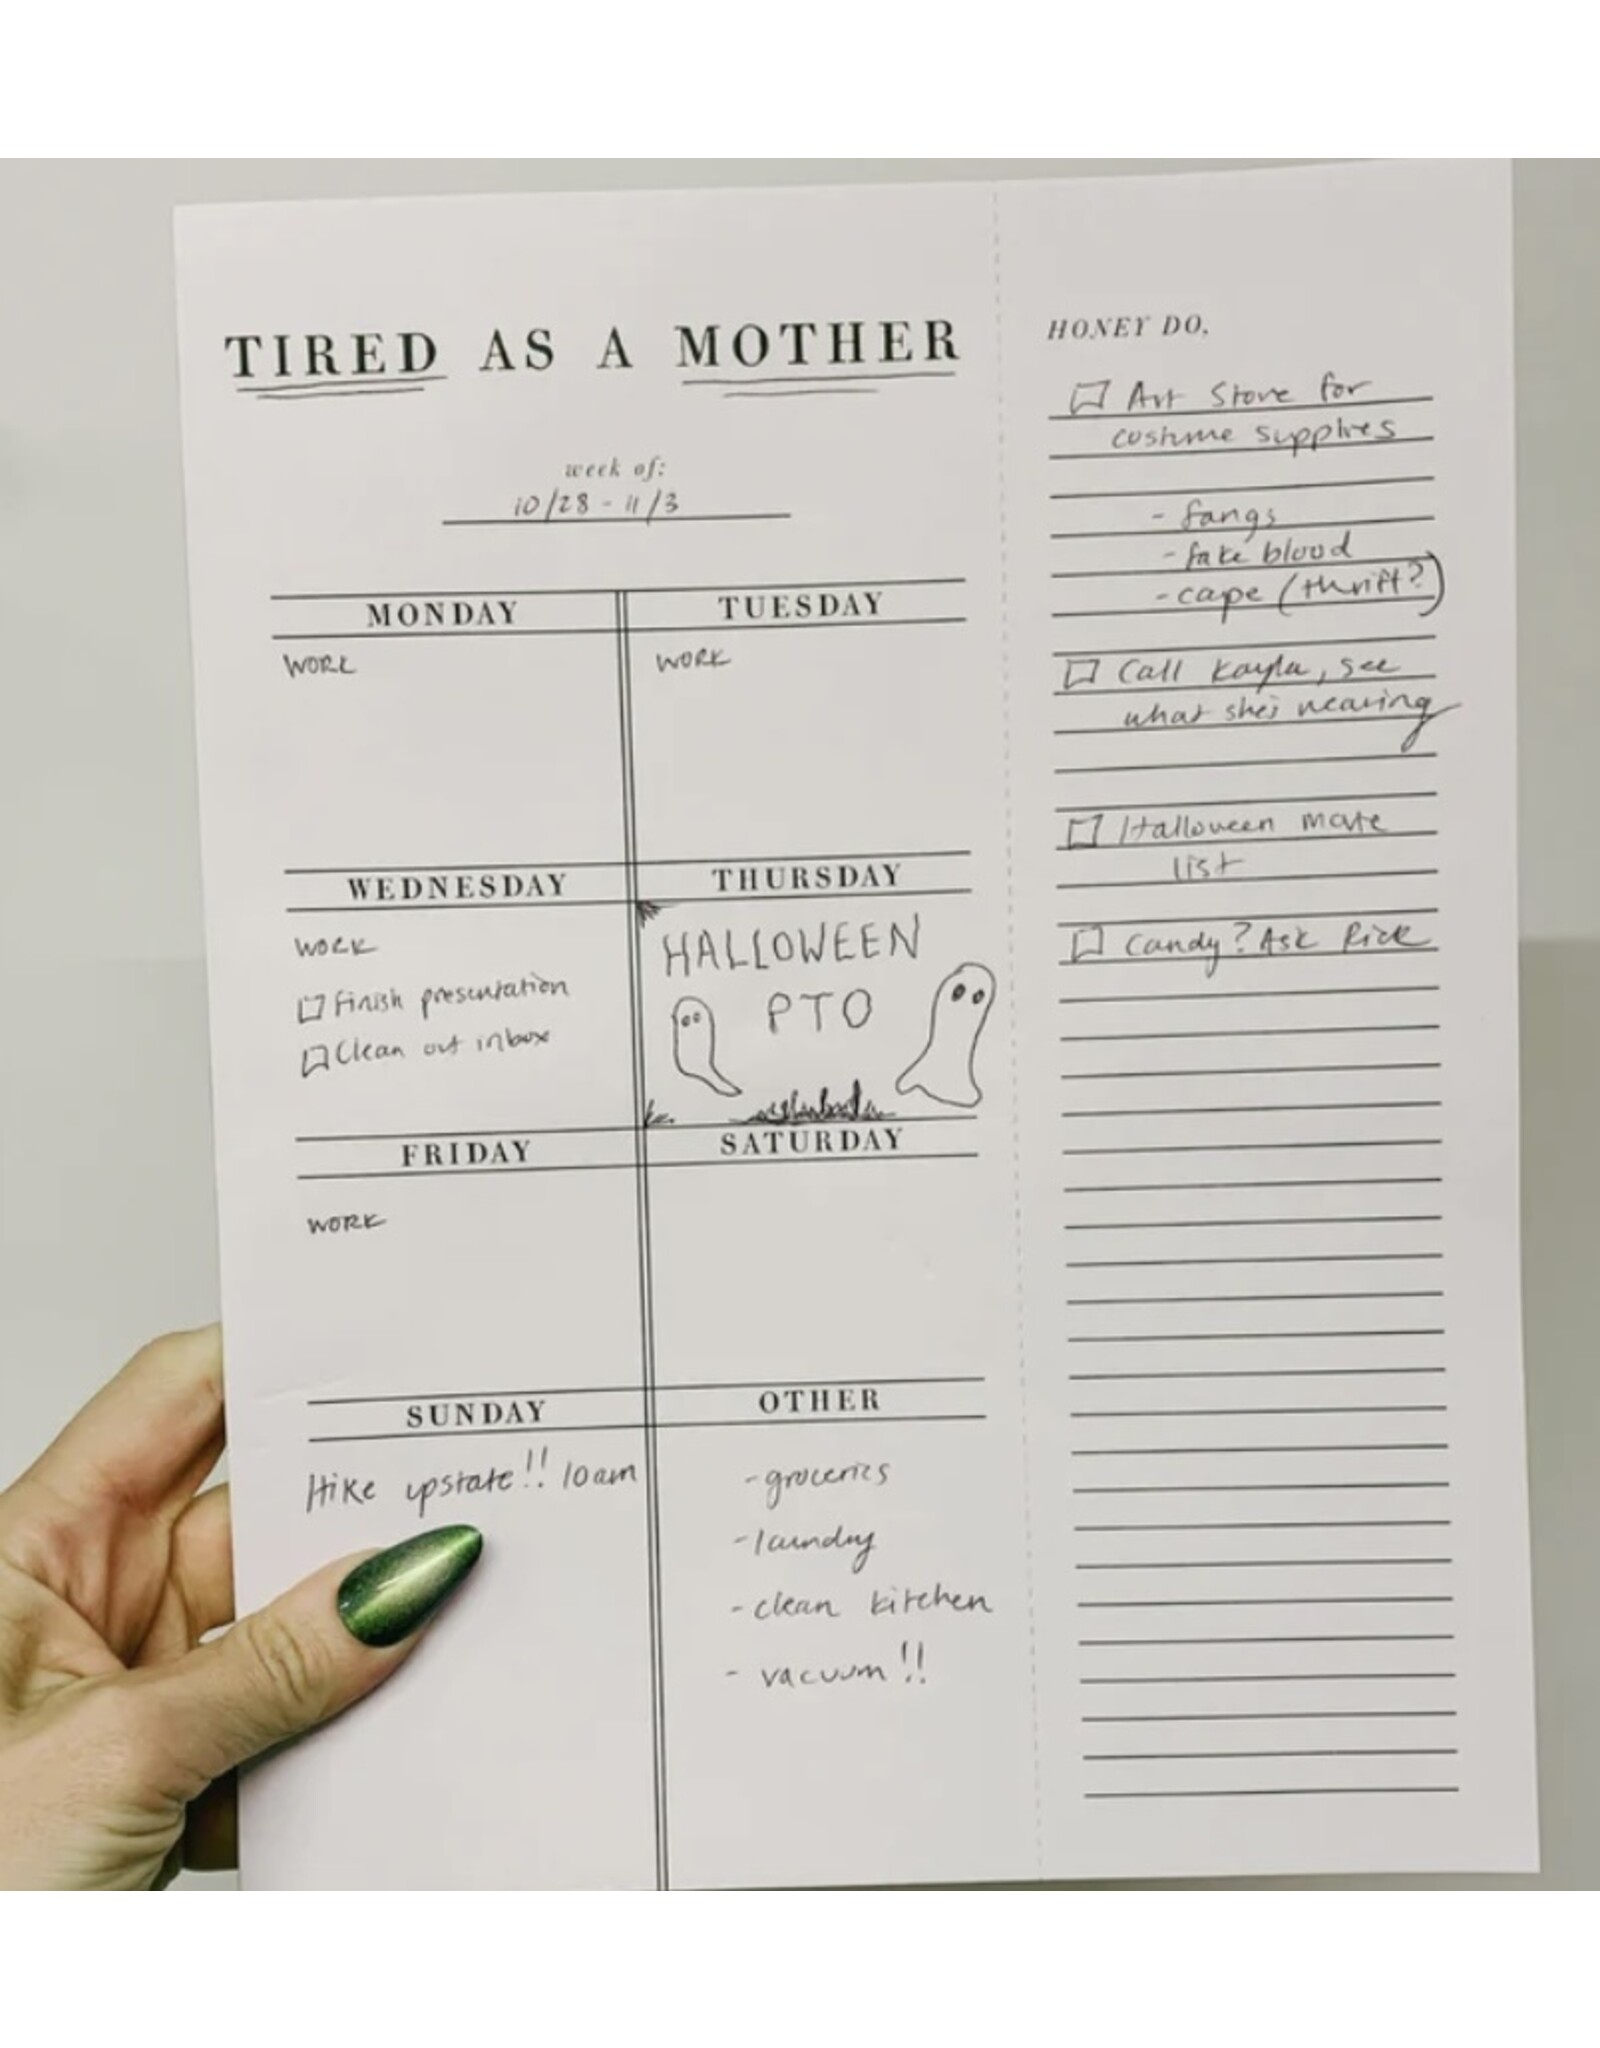 TIRED AS A MOTHER
week of:
10/28 - 11/3
MONDAY
WORK
TUESDAY
WORK
WEDNESDAY
WORK
Finish presentation
Clean out inbox
THURSDAY
HALLOWEEN
PTO
FRIDAY
WORK
SATURDAY
SUNDAY
Hike upstate!! 10am
OTHER
- groceries
- laundry
- clean kitchen
- vacuum!!
HONEY DO,
Art Store for
costume supplies
- fangs
- fake blood
- cape (thrift?)
Call Kayla, see
what she's wearing
Halloween movie
list
Candy? Ask Rick